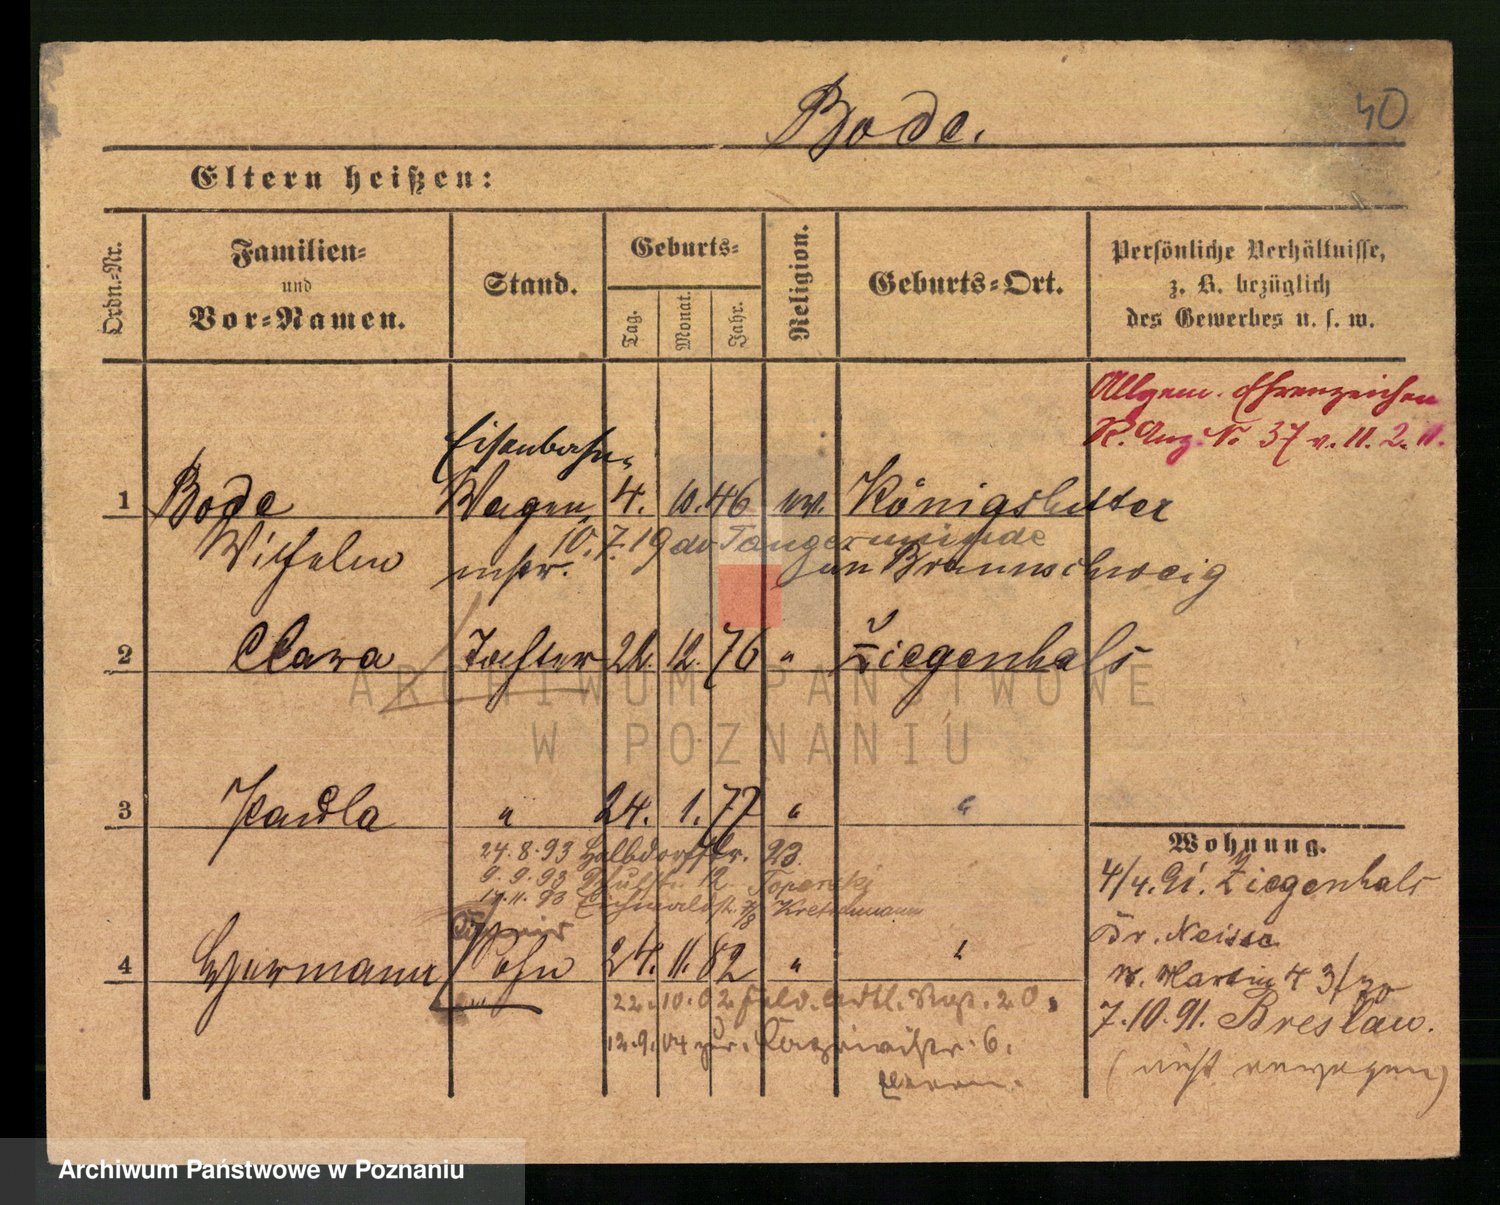 Bode.
40
Eltern heißen:
Ordn.-Nr.
Familien-
und
Vor-Namen.
Stand.
Geburts-
Tag.
Monat.
Jahr.
Religion.
Geburts-Ort.
Persönliche Verhältnisse,
z. B. bezüglich
des Gewerbes u. s. w.
Allgem. Ehrenzeichen
R. Anz. No 37 v. 11. 2. 11.
Eisenbahn-
1 Bode Wagen 4. 10. 46 ev. Königslutter
10. 7. 19 Tangermünde
Wilhelm mstr. in Braunschweig
2 Clara Tochter 12. 76 " Ziegenhals
ARCHIWUM PAŃSTWOWE
W POZNANIU
3 Paula " 24. 1. 77 " "
Wohnung.
24. 8. 93 Halbdorfstr. 23.
4/4. 91. Ziegenhals
9. 9. 93 12
93 Eichwaldstr. 7/8 Kretschmann
Br. Neisse
4 Hermann Sohn 24. 11. 82 " "
W. Martin 4
22. 10. 02 Feld. Artl. Rgt. 20.
7. 10. 91. Breslau.
12. 9. 04 zur. 6.
(nicht
Archiwum Państwowe w Poznaniu